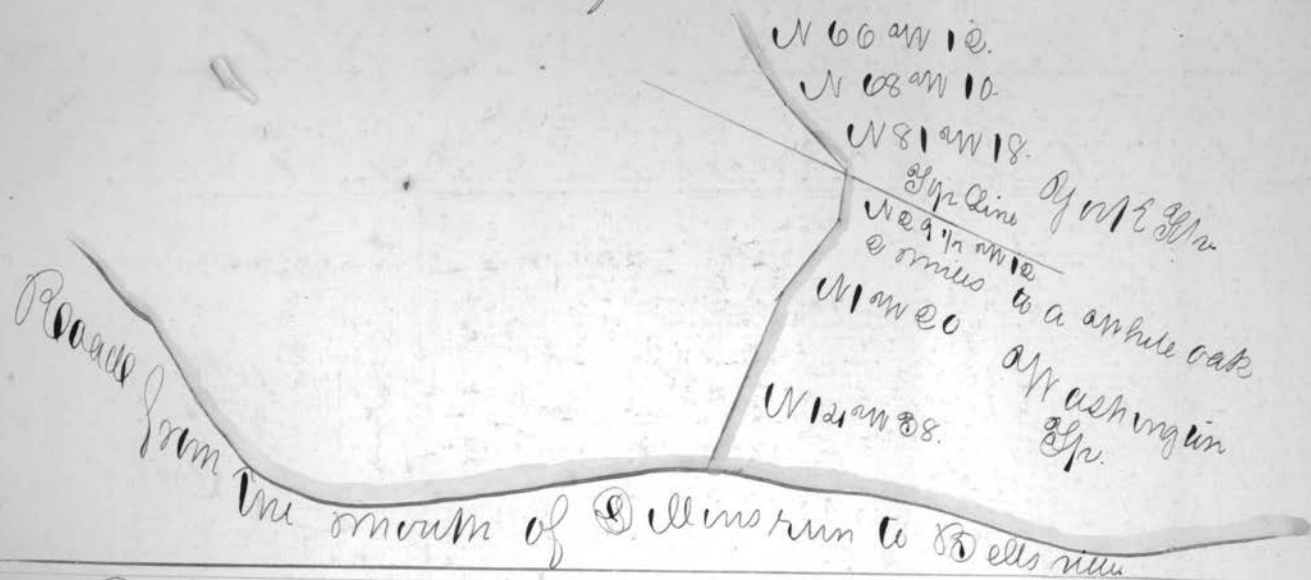 N 66 W 12.
N 68 W 10
N 81 W 18.
Tp Line
N 29 1/2 W 12
2 miles to a white oak
N 1 W 20
Washington
Tp.
N 12 W 38.
Road from the mouth of run to Bells run